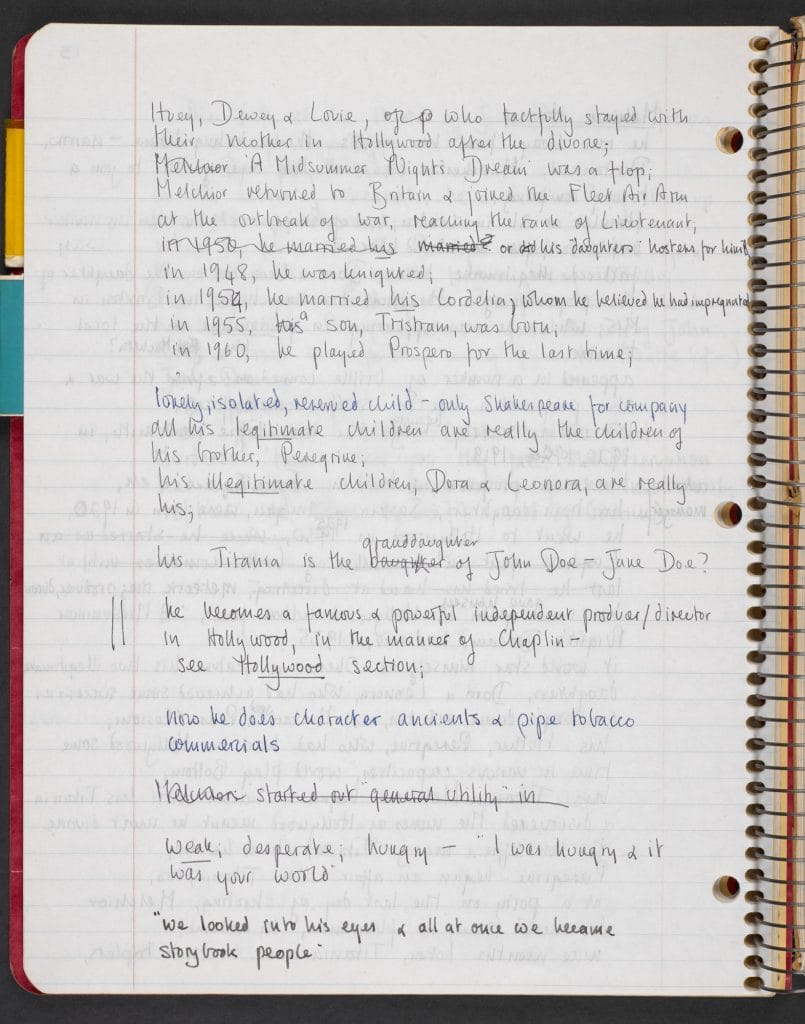 Huey, Dewey & Louie, who tactfully stayed with
their mother in Hollywood after the divorce;
Melchior 'A Midsummer Night's Dream' was a flop;
Melchior returned to Britain & joined the Fleet Air Arm
at the outbreak of war, reaching the rank of Lieutenant;
in 1950, he married his married? or did his daughters' hostess for him?
in 1948, he was knighted;
in 1954, he married his Cordelia, whom he believed he had impregnated
in 1955, his a son, Tristram, was born;
in 1960, he played Prospero for the last time;
lonely, isolated, reserved child – only Shakespeare for company
all his legitimate children are really the children of
his brother, Peregrine;
his illegitimate children, Dora & Leonora, are really
his;
granddaughter
his Titania is the daughter of John Doe – Jane Doe?
he becomes a famous & powerful independent producer/director
in Hollywood, in the manner of Chaplin –
see Hollywood section;
now he does character ancients & pipe tobacco
commercials
Melchior started out "general utility" in
weak; desperate; hungry – "I was hungry & it
was your world"
"We looked into his eyes & all at once we became
storybook people"